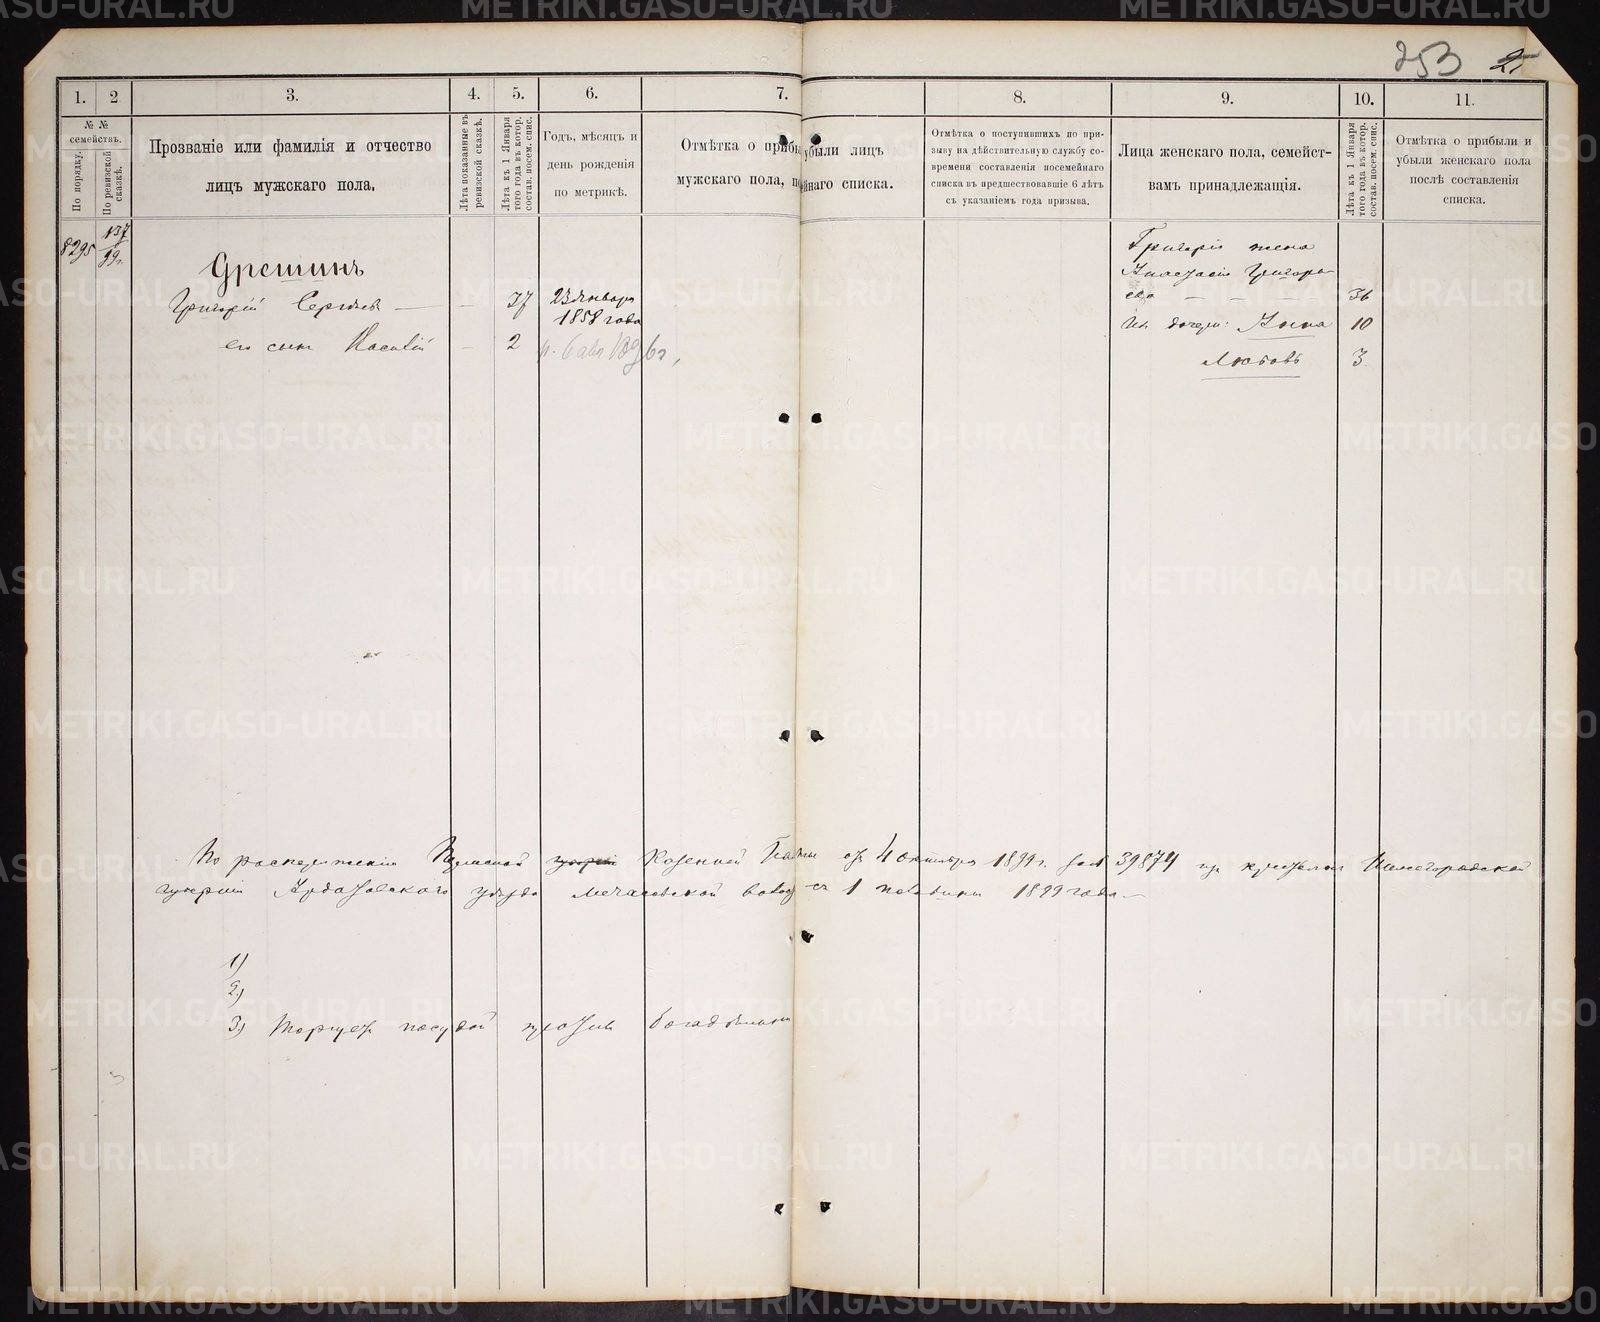 253 25
1. 2 3. 4. 5. 6. 7. 8. 9. 10. 11.
№ №
семействъ.
По порядку.
По ревизской
сказкѣ.
Прозваніе или фамилія и отчество
лицъ мужскаго пола.
Лѣта показанные въ
ревизской сказкѣ.
Лѣта къ 1 Января
того года въ котор.
состав. посем. спис.
Годъ, мѣсяцъ и
день рожденія
по метрикѣ.
Отмѣтка о прибы
убыли лицъ
мужскаго пола, по
ейнаго списка.
Отмѣтка о поступившихъ по при-
зыву на дѣйствительную службу со-
времени составленія посемейнаго
списка въ предшествовавшіе 6 лѣтъ
съ указаніемъ года призыва.
Лица женскаго пола, семейст-
вамъ принадлежащія.
Лѣта къ 1 Января
того года въ котор.
состав. посем. спис.
Отмѣтка о прибыли и
убыли женскаго пола
послѣ составленія
списка.
8295 137
99г.
Григорій Сергѣевъ — — 37 23 Января
1858 года
его сынъ Василій — 2 р. 6 авг 1896г,
Григорія жена
Анастасія Григорь
ева — — — 36
Их дочери: Анна 10
Любовь 3
По распоряженію Пермской губерніи Казенной Палаты отъ 4 октября 1899 г. за № 39874 из крестьян Нижегородской
губерніи Ардатовского уѣзда волос съ 1 половины 1899 года.—
1)
2)
3) Торгует посудой против богадѣльни
METRIKI.GASO-URAL.RU